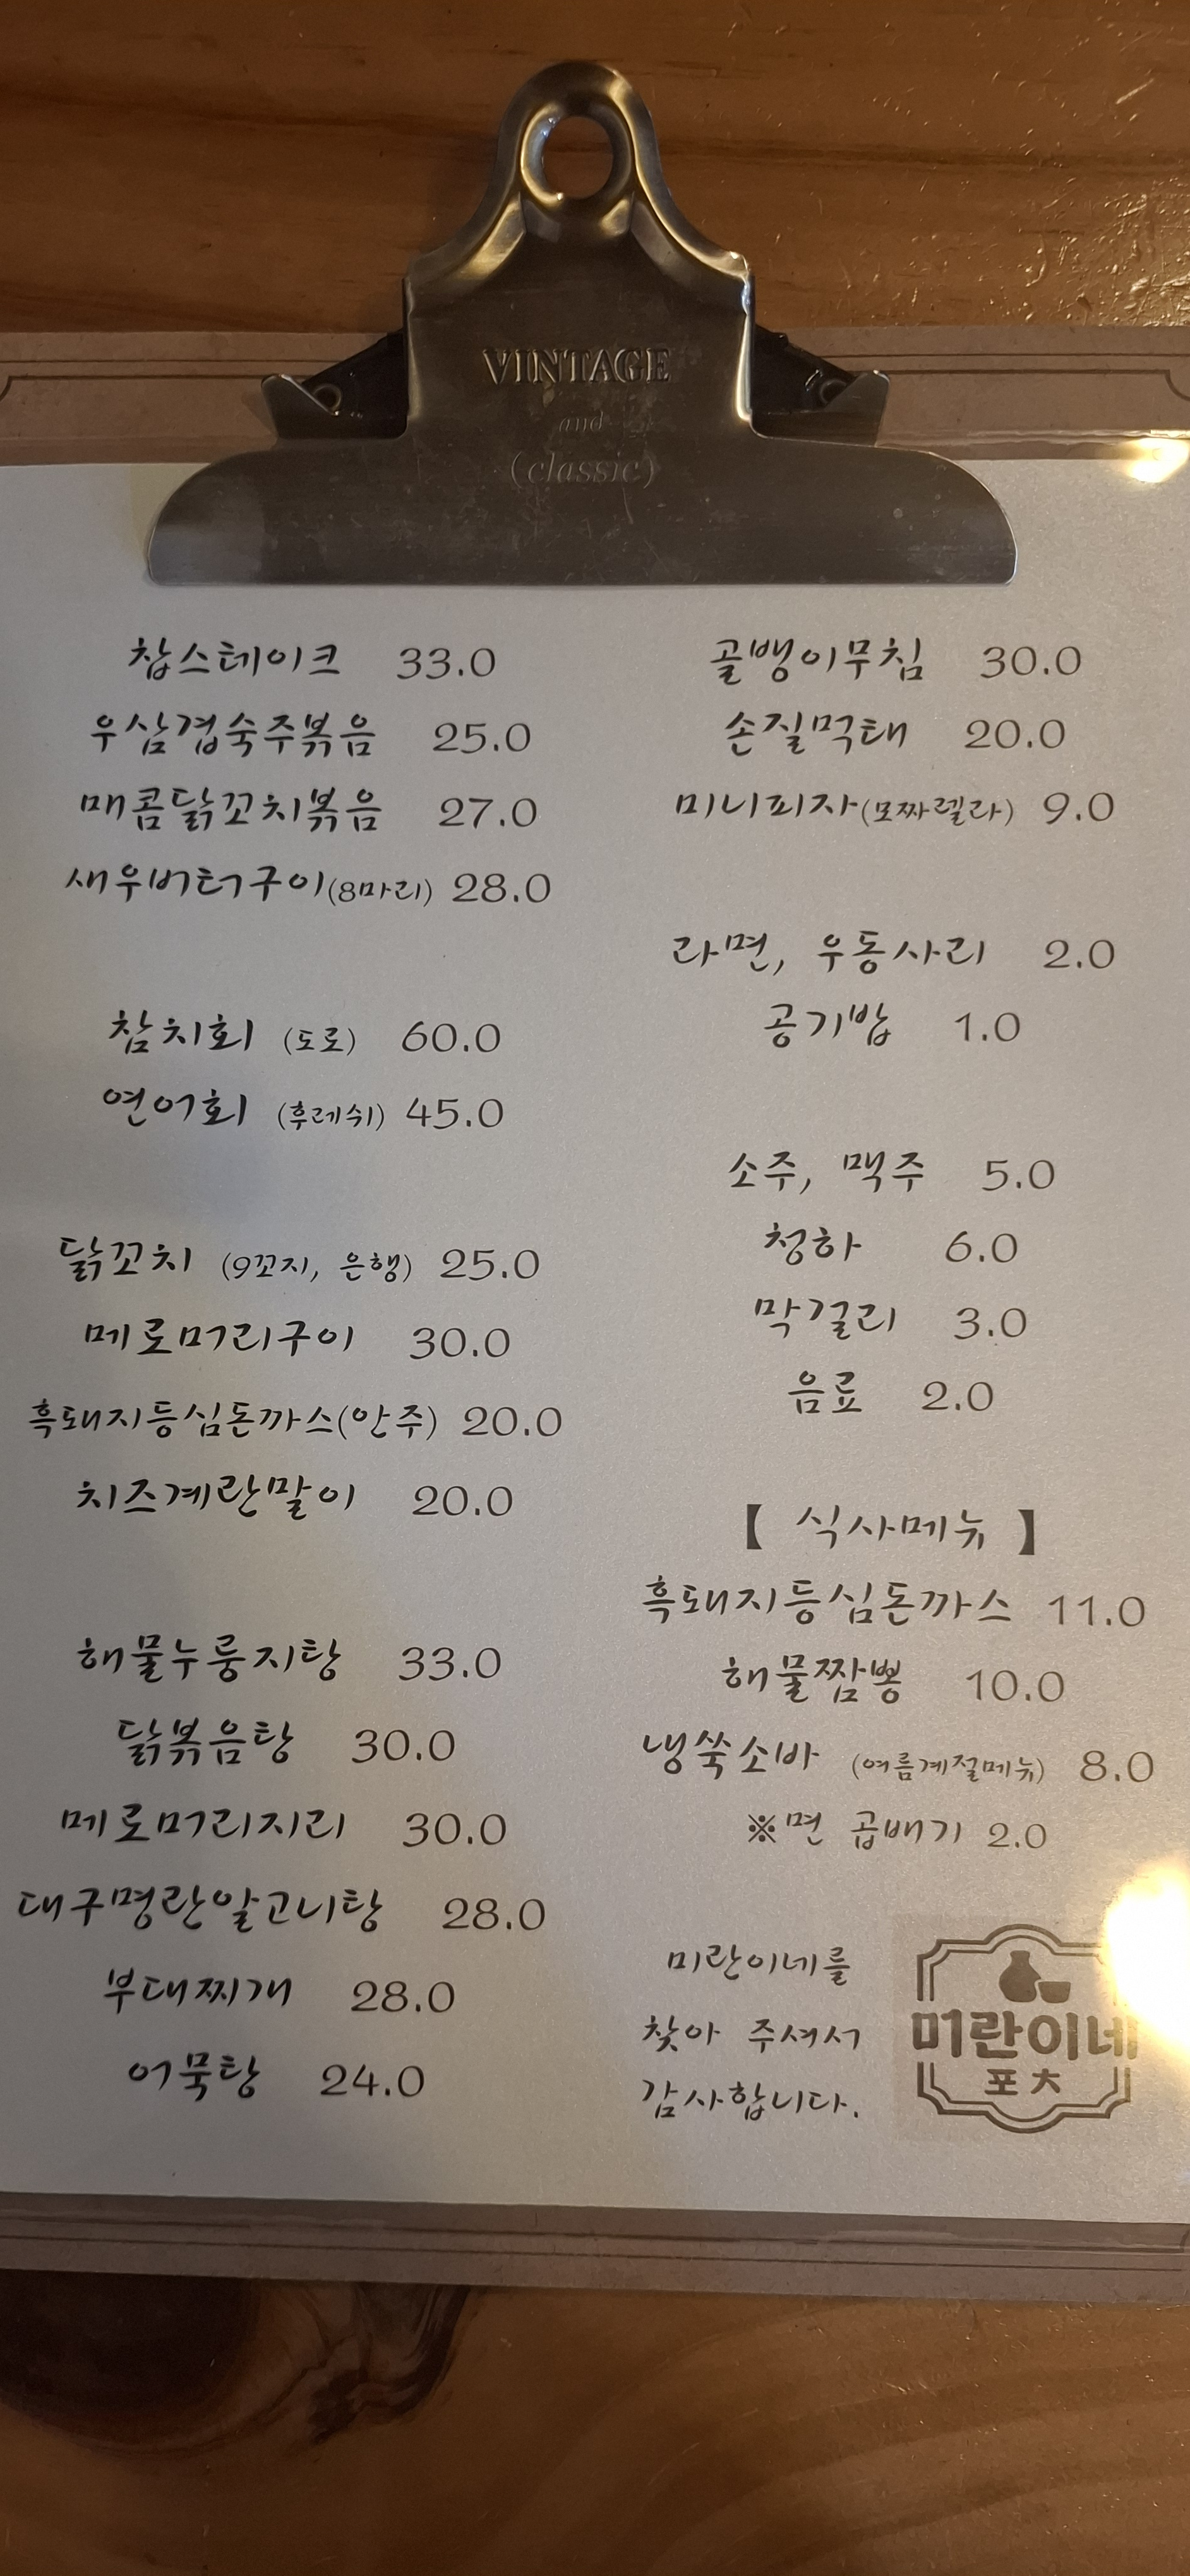 VINTAGE
and
(classic)
찹스테이크 33.0
우삼겹숙주볶음 25.0
매콤닭꼬치볶음 27.0
새우버터구이(8마리) 28.0
참치회 (도로) 60.0
연어회 (후레쉬) 45.0
닭꼬치 (9꼬지, 은행) 25.0
메로머리구이 30.0
흑돼지등심돈까스(안주) 20.0
치즈계란말이 20.0
해물누룽지탕 33.0
닭볶음탕 30.0
메로머리지리 30.0
대구명란알고니탕 28.0
부대찌개 28.0
어묵탕 24.0
골뱅이무침 30.0
손질먹태 20.0
미니피자(모짜렐라) 9.0
라면, 우동사리 2.0
공기밥 1.0
소주, 맥주 5.0
청하 6.0
막걸리 3.0
음료 2.0
【 식사메뉴 】
흑돼지등심돈까스 11.0
해물짬뽕 10.0
냉쑥소바 (여름계절메뉴) 8.0
※면 곱배기 2.0
미란이네를
찾아 주셔서
감사합니다.
미란이네
포차